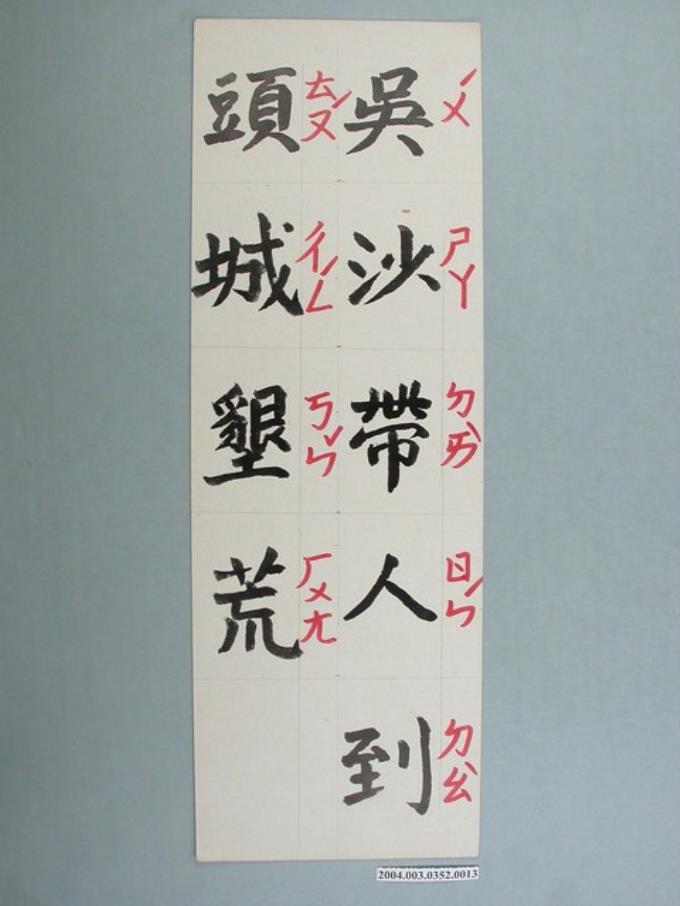 吳沙帶人到
ˊㄨ
ㄕㄚ
ㄉㄞˋ
ㄖㄣˊ
ㄉㄠˋ
頭城墾荒
ㄊㄡˊ
ㄔㄥˊ
ㄎㄣˇ
ㄏㄨㄤ
2004.003.0352.0013